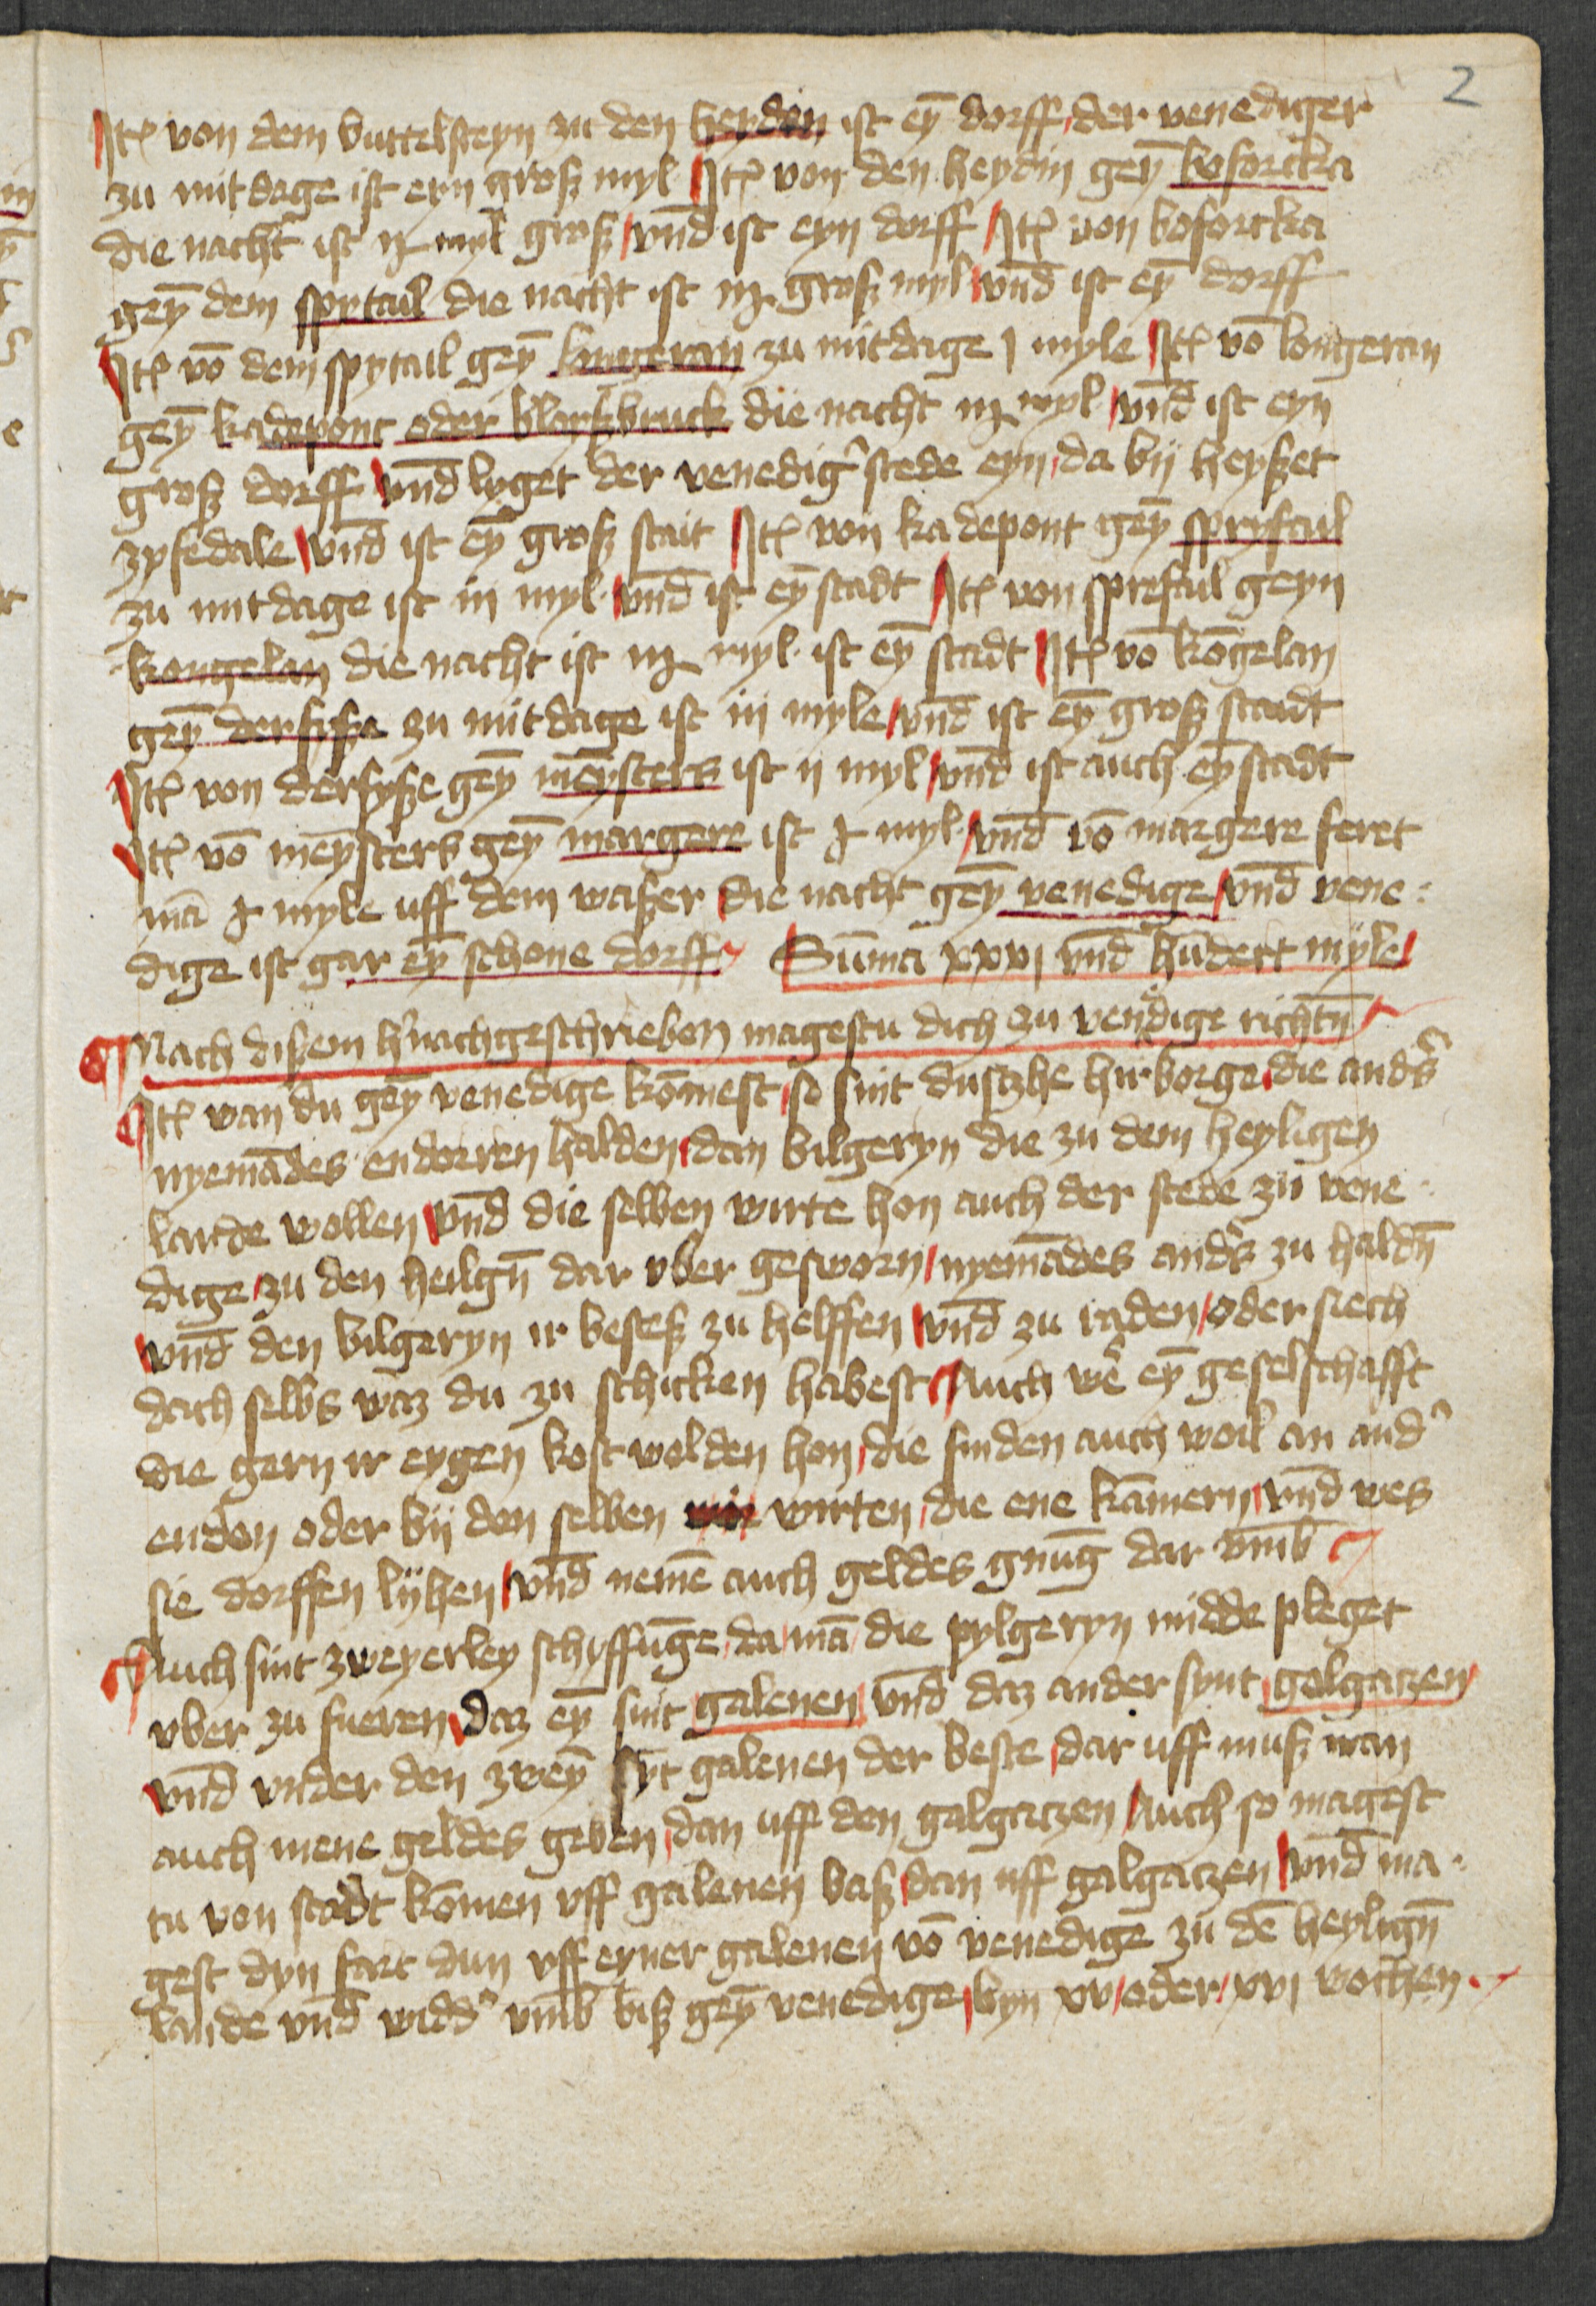 2
Itē von dem buttelsteyn zu den heyden ist eȳ dorff der venediger
zu mitdage ist eyn groß myl Itē von den heydin geȳ boforcka
die nacht ist myl groß vnd̄ ist eyn dorff Itē von boforcka
geȳ dem spytail die nacht ist groß myl vnd̄ ist eȳ dorff
Itē vō dem spytail geȳ kongeran zu mitdage j myle Itē vō kongeran
geȳ kadepont oder blaßbruck die nacht myl vnd̄ ist eyn
groß dorff vnd̄ lyget der venedig̾ stede eyn da bij heyßet
zyfedale vnd̄ ist eȳ groß stait Itē von kadepont geȳ spryfail
zu mitdage ist iij myl vnd̄ ist eȳ stadt Itē von sprefail geyn
kongelan die nacht ist myl ist eȳ stadt Itē vō kōgelan
geȳ derfyße zu mitdage ist iij myle vnd̄ ist eȳ groß stadt
Itē von derfyße geȳ meysters ist ij myl vnd̄ ist auch eȳ stadt
Itē vō meysters geȳ margere ist myl vnd̄ vō margere feret
mā myle uff dem waßer die nacht geȳ venedige vnd̄ vene
dige ist gar eȳ schone dorff Sūma xxvj vnd̄ hūdert myle
Nach dißem h̾nachgeschrieben magestu dich zu venedige richtn̄
Itē wan du geȳ venedige kōmest so sint dutzhe hirborge die and̾s
nyemādes endorren halden dan bilgeryn die zu dem heyligen
lande wollen vnd̄ die selben wirte hon auch der stede zu vene
dige zu den heilgn̄ dar vber gesworn nyemādes and̾s zu haldn̄
vnd̄ den bilgeryn ir bestes zu helffen vnd̄ zu raden oder siech
dach selbs waz du zu schicken habest Auch we̾ eȳ geselschafft
die gern ir eygen kost wolden hon die finden auch woil an and̾
enden oder bij den selben wirten die ene kāmern vnd̄ wes
sie dorffen lyhen vnd̄ nemē auch geldes gnūg dar vmb
Auch sint zweyerley schyffūge da mā die pylgeryn midde pleget
vber zu fueren daz eȳ sint galenen vnd̄ daz ander synt galgatzen
vnd̄ vnder den zweȳ sȳt galenen der beste dar uff muß man
auch mene geldes geben dan uff den galgatzen Auch so magest
tu von stadt kōmen vff galenen baß dan uff galgatzen vnd̄ ma
gest dyn fart dun vff eyner galenen vō venedige zu dē heylign̄
lande vnd̄ widd̾ vmb biß geȳ venedige byn xv oder xvj wochen